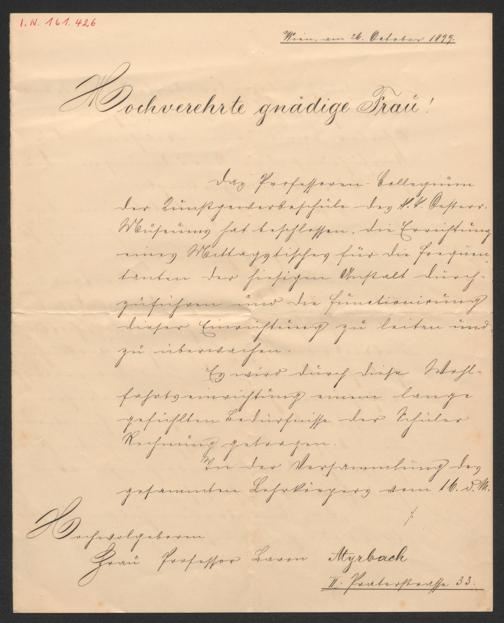 I.N. 161.426
Wien, am 26. October 1899.
Hochverehrte gnädige Frau!
Das Professoren-Collegium
der Kunstgewerbeschule des k. k. Oesterr.
Museums hat beschlossen, die Errichtung
eines Mittagstisches für die Frequen-
tanten der hiesigen Anstalt durch-
zuführen und die Functionirung
dieser Einrichtung zu leiten und
zu überwachen.
Es wird durch diese Wohl-
fahrtseinrichtung einem lange
gefühlten Bedürfnisse der Schüler
Rechnung getragen.
In der Versammlung des
gesammten Lehrkörpers vom 16. d. M.
Hochwolgeboren
Frau Professor Baron Myrbach
II. Praterstrasse 33.